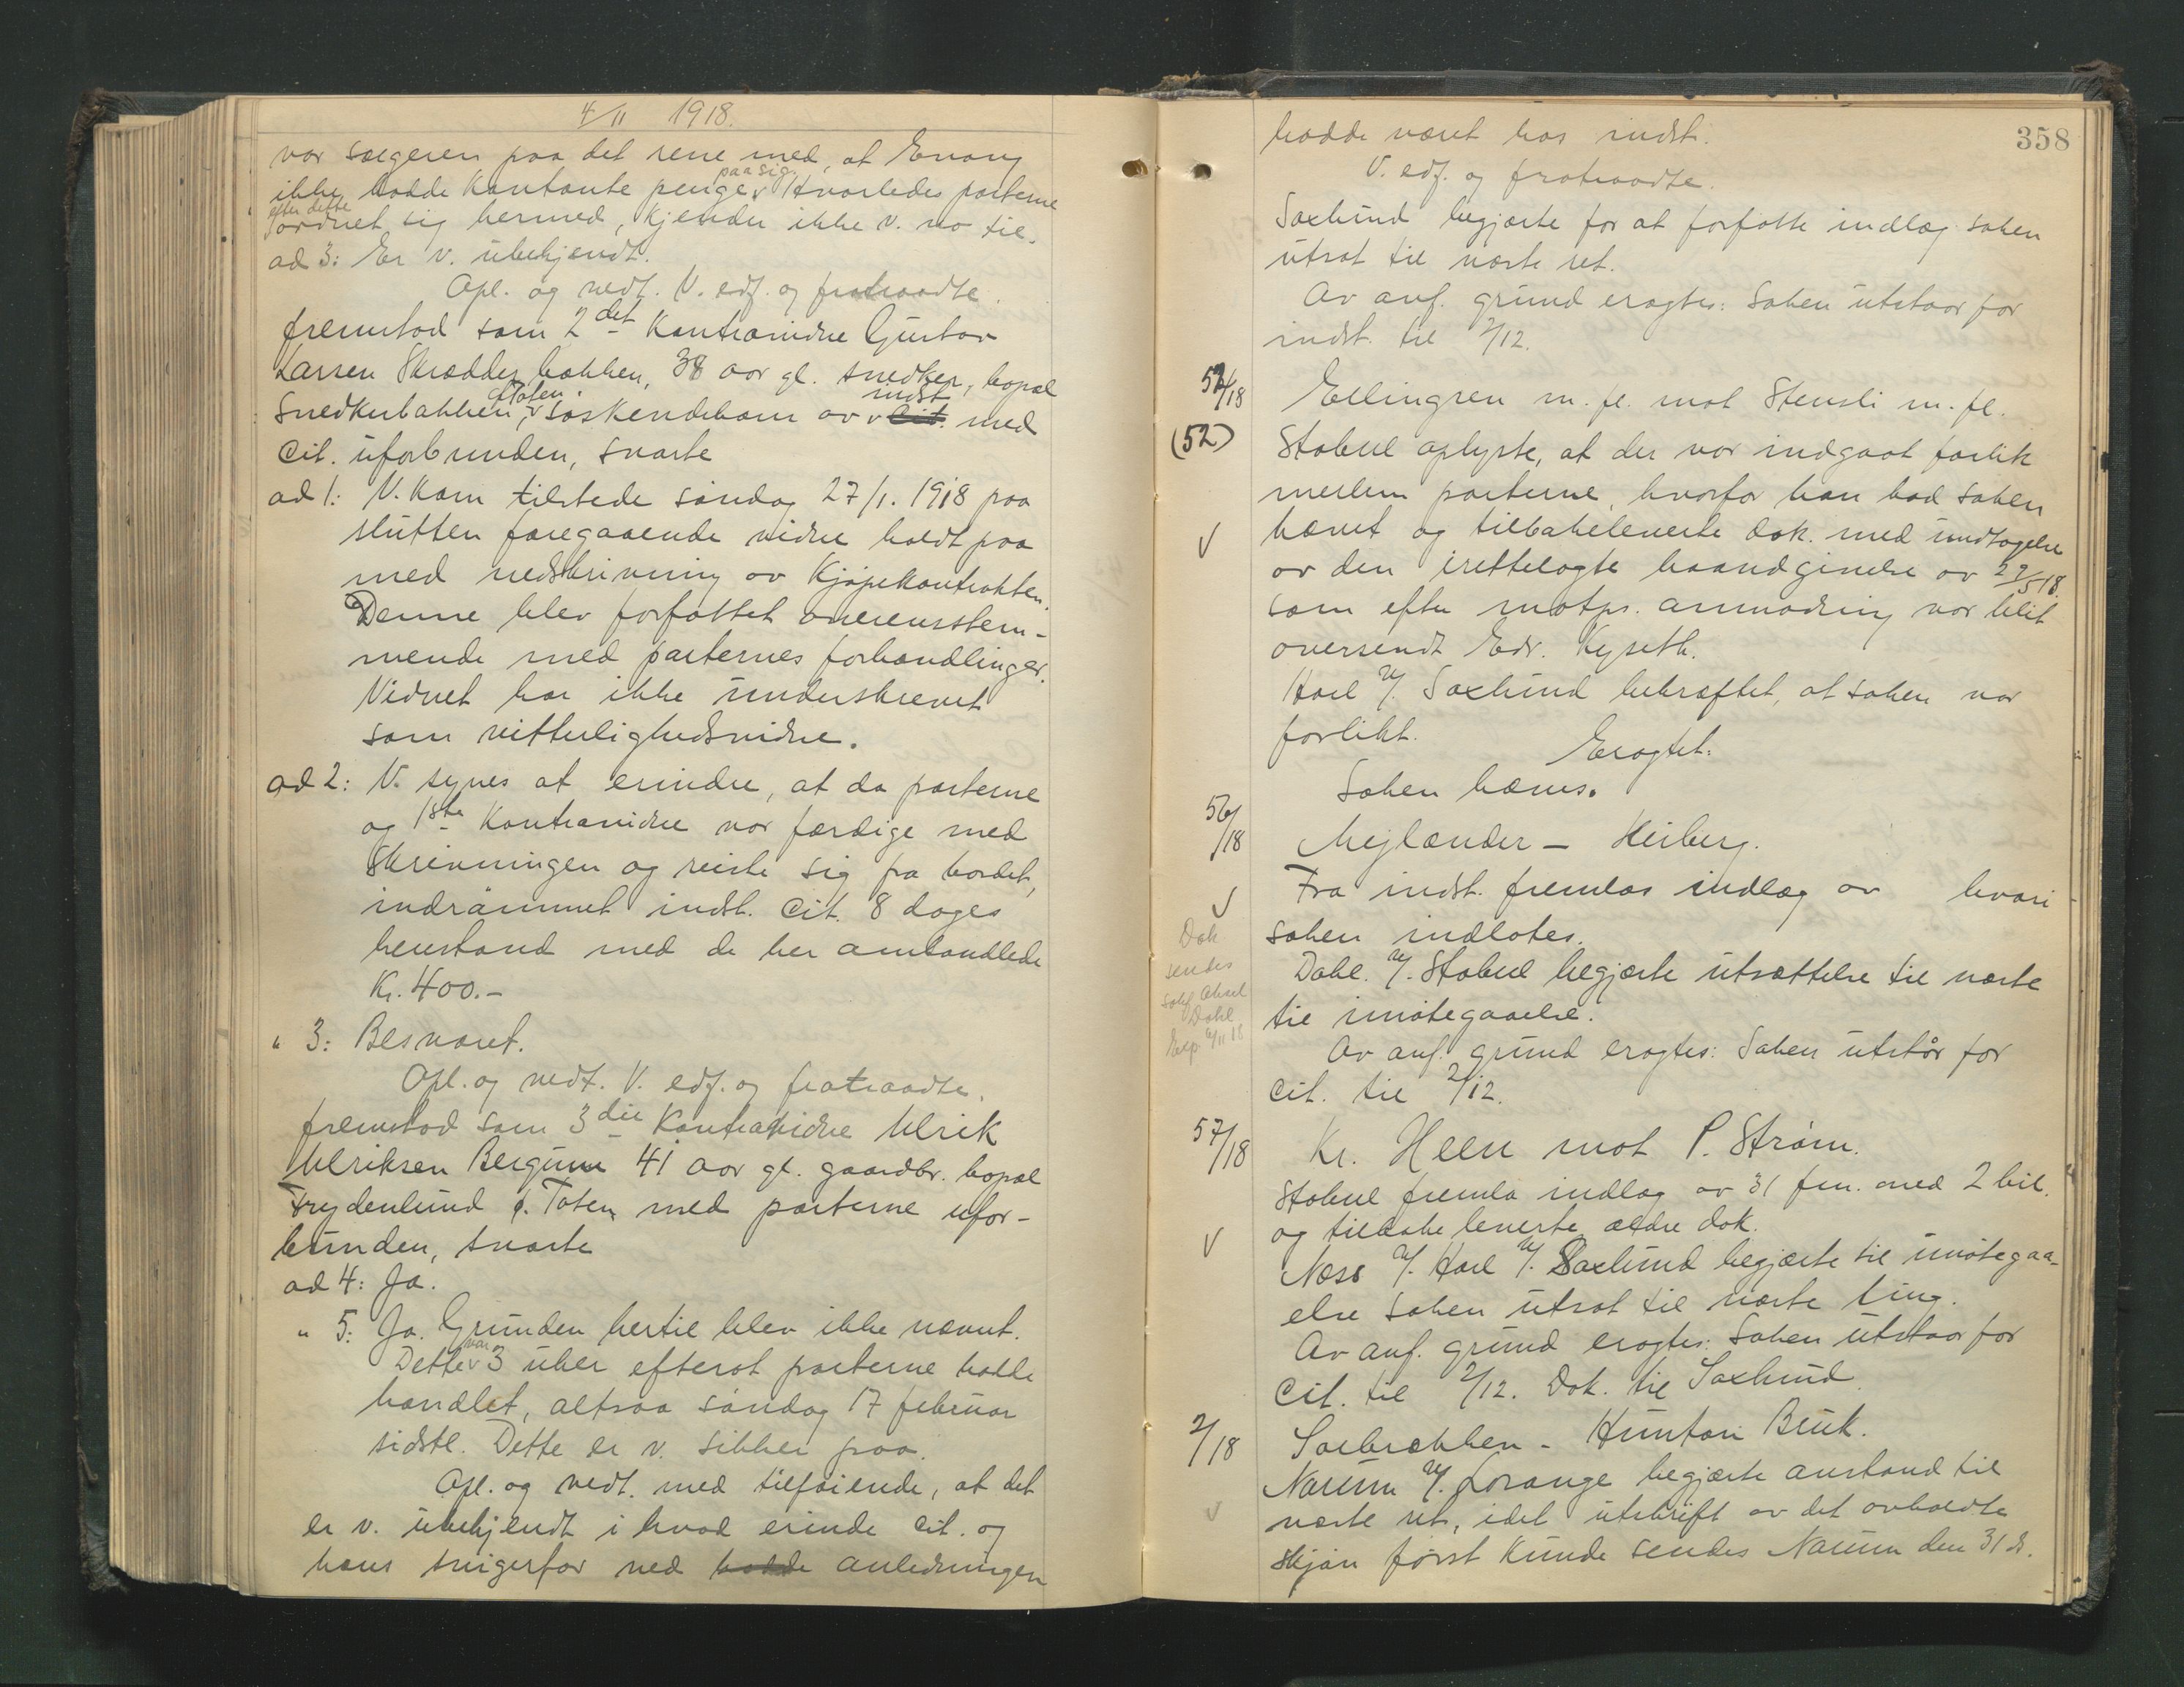 4/11 1918.
var sælgeren paa det rene med, at Evang
ikke hadde kontante penge paa sig. Hvorledes parterne
efter dette ordnet sig hermed, kjender ikke v. no til.
ad 3: Er v. ubekjendt.
Opl. og vedt. V. edf. og fratraadte.
fremstod som 2det Kontravidne Gustav
Larsen Skrædderbakken, 38 aar gl. snedker, bopæl
Snedkerbakken, Ø Toten, søskendebarn av indst. cit. med
cit. uforbunden, svarte
ad 1: V. kom tilstede søndag 27/1. 1918 paa
slutten foregaaende vidne holdt paa
med nedskrivning av Kjøpekontrakten.
Denne blev forfattet overensstem-
mende med parternes forhandlinger.
Vidnet har ikke underskrevet
som vitterlighedsvidne.
ad 2: V. synes at erindre, at da parterne
og 1ste Kontravidne var færdige med
Skrivningen og reiste sig fra bordet,
indrømmet indst. cit. 8 dages
henstand med de her omhandlede
Kr. 400.-
" 3: Besvaret.
Opl. og vedt. V. edf. og fratraadte.
fremstod som 3die Kontravidne Ulrik
Ulriksen Bergum 41 aar gl. gaardbr. bopæl
Frydenlund Ø. Toten med parterne ufor-
bunden, svarte
ad 4: Ja.
" 5: Ja. Grunden hertil blev ikke nævnt.
Dette var 3 uker efterat parterne hadde
handlet, altsaa søndag 17 februar
sidstl. Dette er v. sikker paa.
Opl. og vedt. med tilføiende, at det
er v. ubekjendt i hvad erinde cit. og
hans svigerfar ved hadde anledningen
358
hadde været hos indst.
V. edf. og fratraadte.
Saxlund begjærte for at forfatte indlæg saken
utsat til næste ret.
Av anf. grund eragtes: Saken utstaar for
indst. til 2/12.
52/18 Ellingsen m. fl. mot Stensli m. fl.
(52) Stabell oplyste, at der var indgaat forlik
mellem parterne, hvorfor han bad saken
hævet og tilbakeleverte dok. med undtagelse
V
av den irettelagte haandgivelse av 27/5 18.
som efter motps. anmodning var blit
oversendt Edv. Kyseth.
Hoel v/. Saxlund bekræftet, at saken var
forlikt.
Eragtet:
Saken hæves.
56/18 Mejlænder - Heiberg.
Fra indst. fremlas indlæg av hvori
V
saken indlates.
Dok
sendes
sakf Aksel
Dahl
Exp 6/11 18
Dahl. v/. Stabell begjærte utsættelse til næste
til imøtegaaelse.
Av anf. grund eragtes: Saken utstår for
cit. til 2/12.
57/18 Kr. Heen mot P. Strøm.
Stabell fremla indlæg av 31 f.m. med 2 bil.
og tilbakeleverte ældre dok.
V
Næss v/. Hoel v/. Saxlund begjærte til imøtegaa-
else saken utsat til næste ting.
Av anf. grund eragtes: Saken utstaar for
cit. til 2/12. Dok. til Saxlund.
2/18 Solbrækken - Hunton Bruk.
Narum v/. Lorange begjærte anstand til
næste ret, idet utskrift av det avholdte
V
skjøn først kunde sendes Narum den 31 ds.